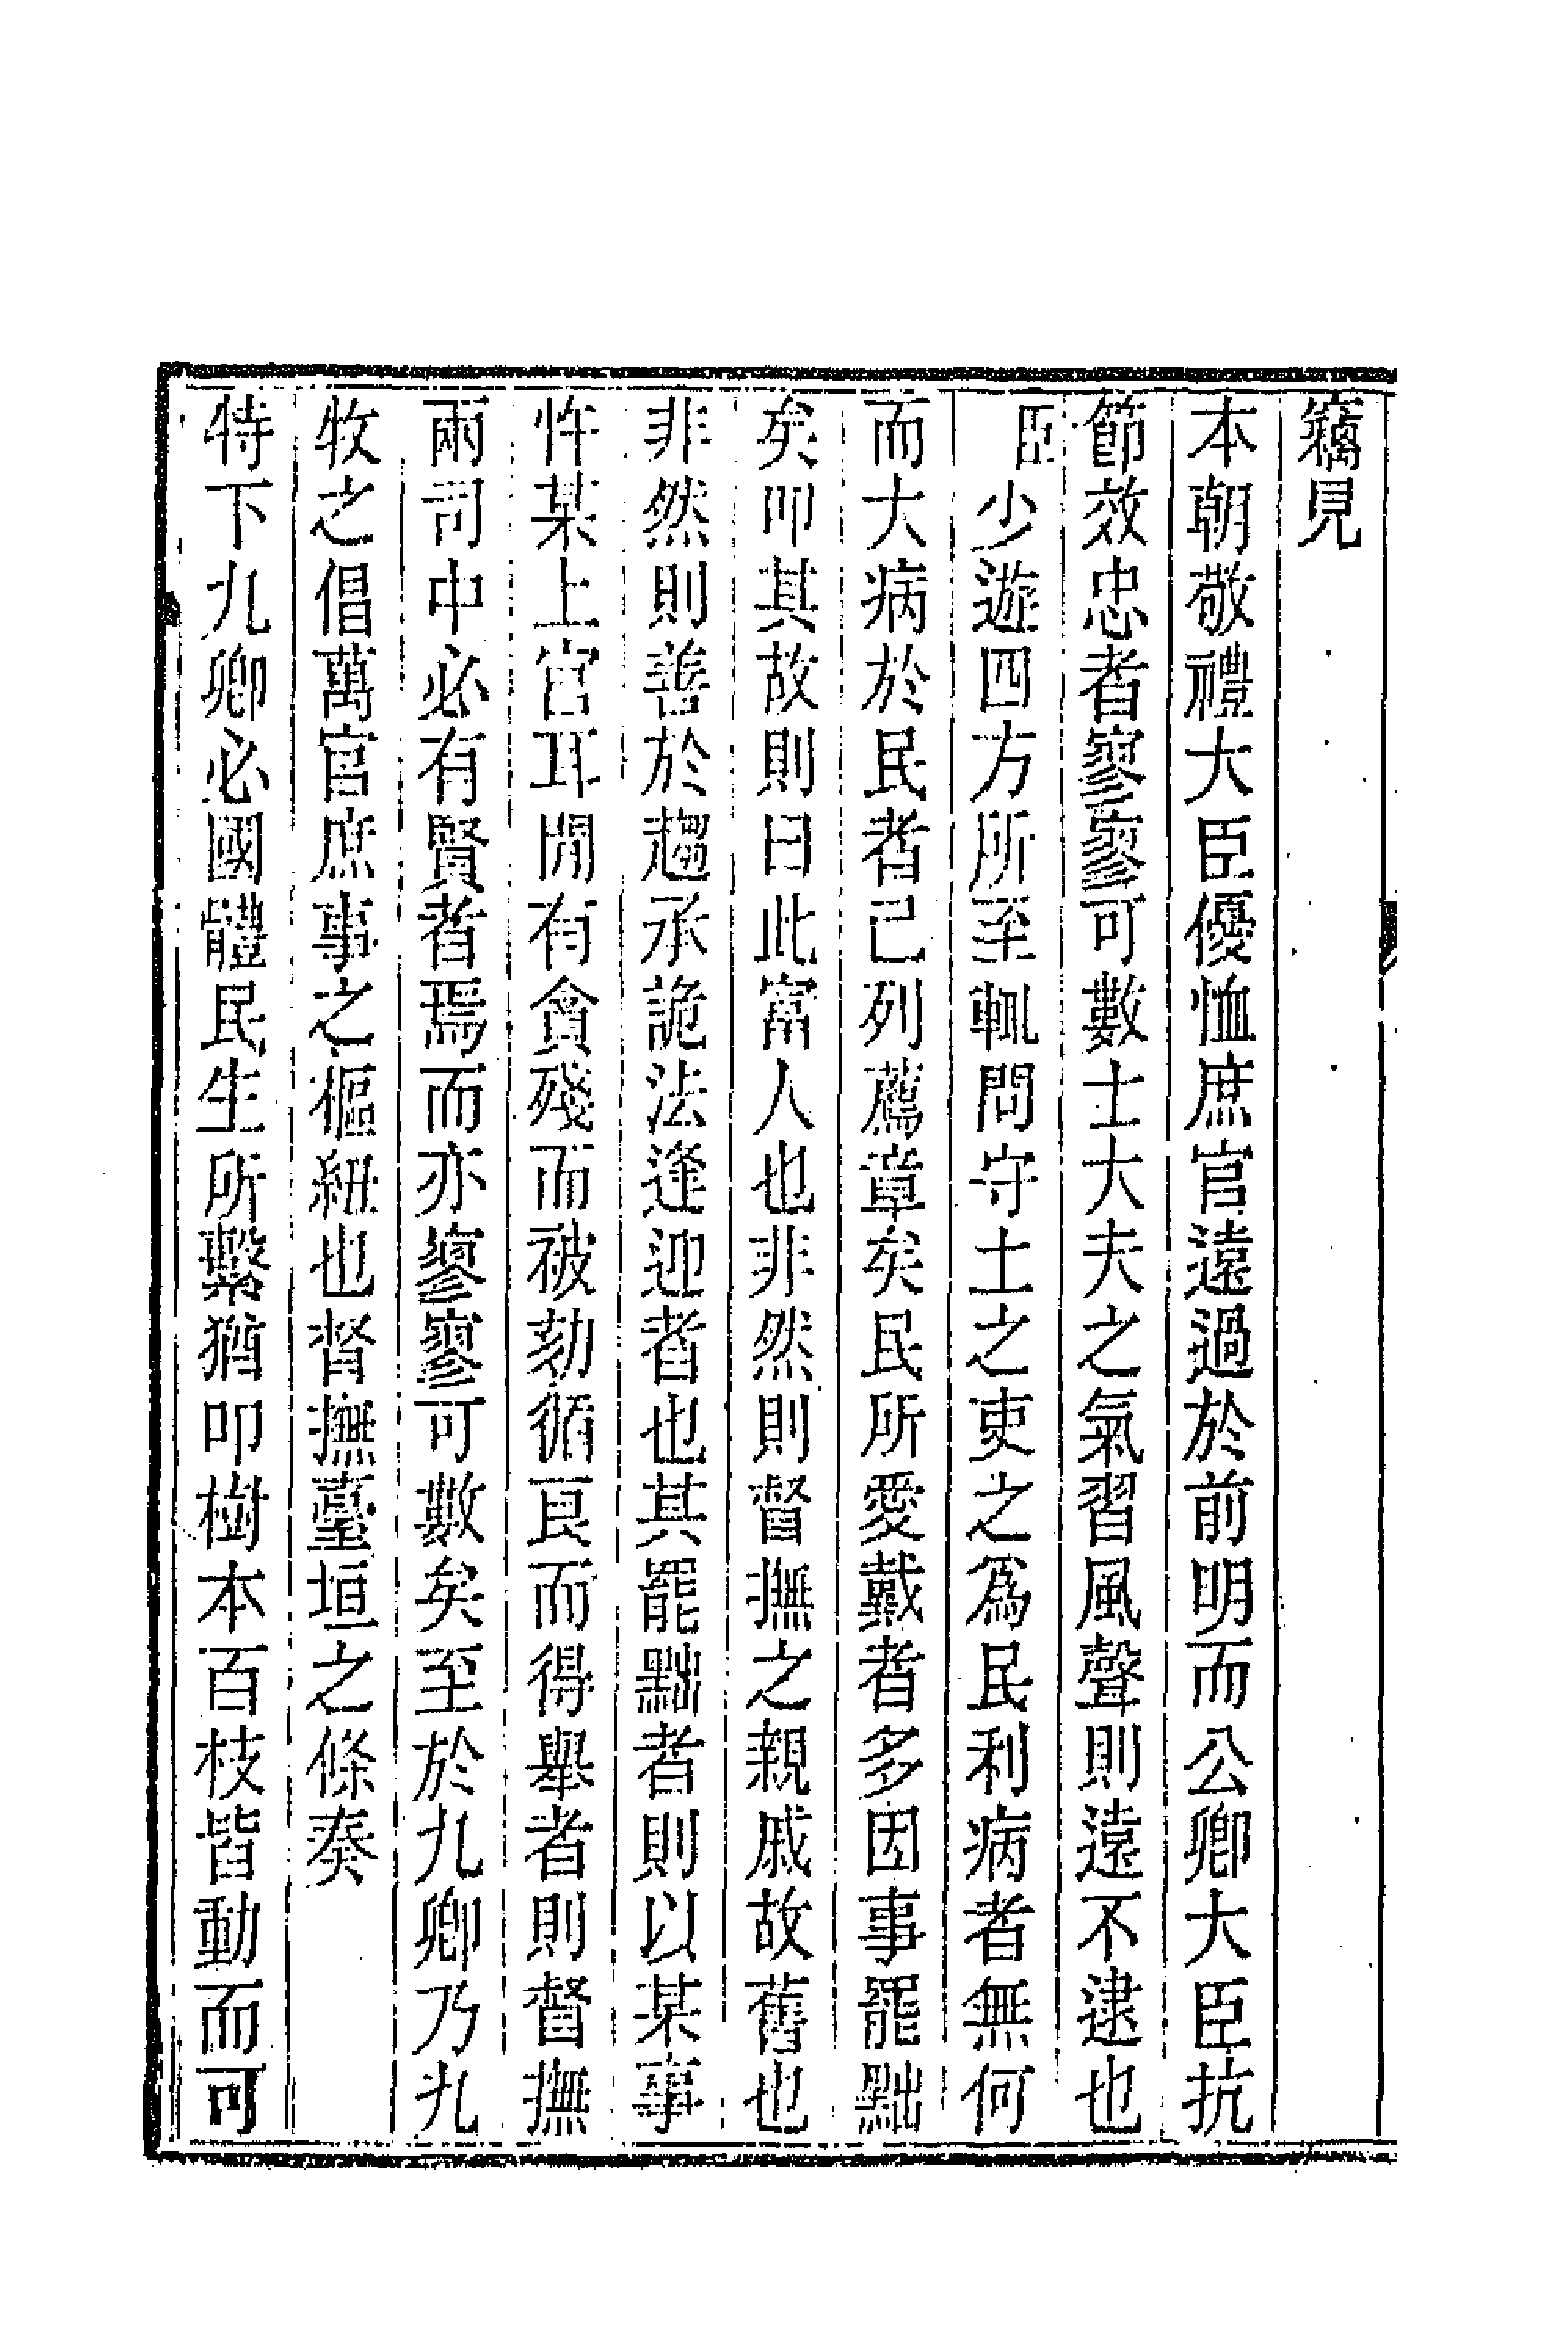 竊見
本朝敬禮大臣優恤庶官遠過於前明而公卿大臣抗
節效忠者寥寥可數士大夫之氣習風聲則遠不逮也
臣少遊四方所至輒問守土之吏之為民利病者無何
而大病於民者已列薦章矣民所愛戴者多因事罷黜
矣叩其故則曰此富人也非然則督撫之親戚故舊也
非然則善於趨承詭法逢迎者也其罷黜者則以某事
忤某上官耳閒有貪殘而被劾循良而得舉者則督撫
兩司中必有賢者焉而亦寥寥可數矣至於九卿乃九
牧之倡萬官庶事之樞紐也督撫臺垣之條奏
特下九卿必國體民生所繫猶叩樹本百枝皆動而可